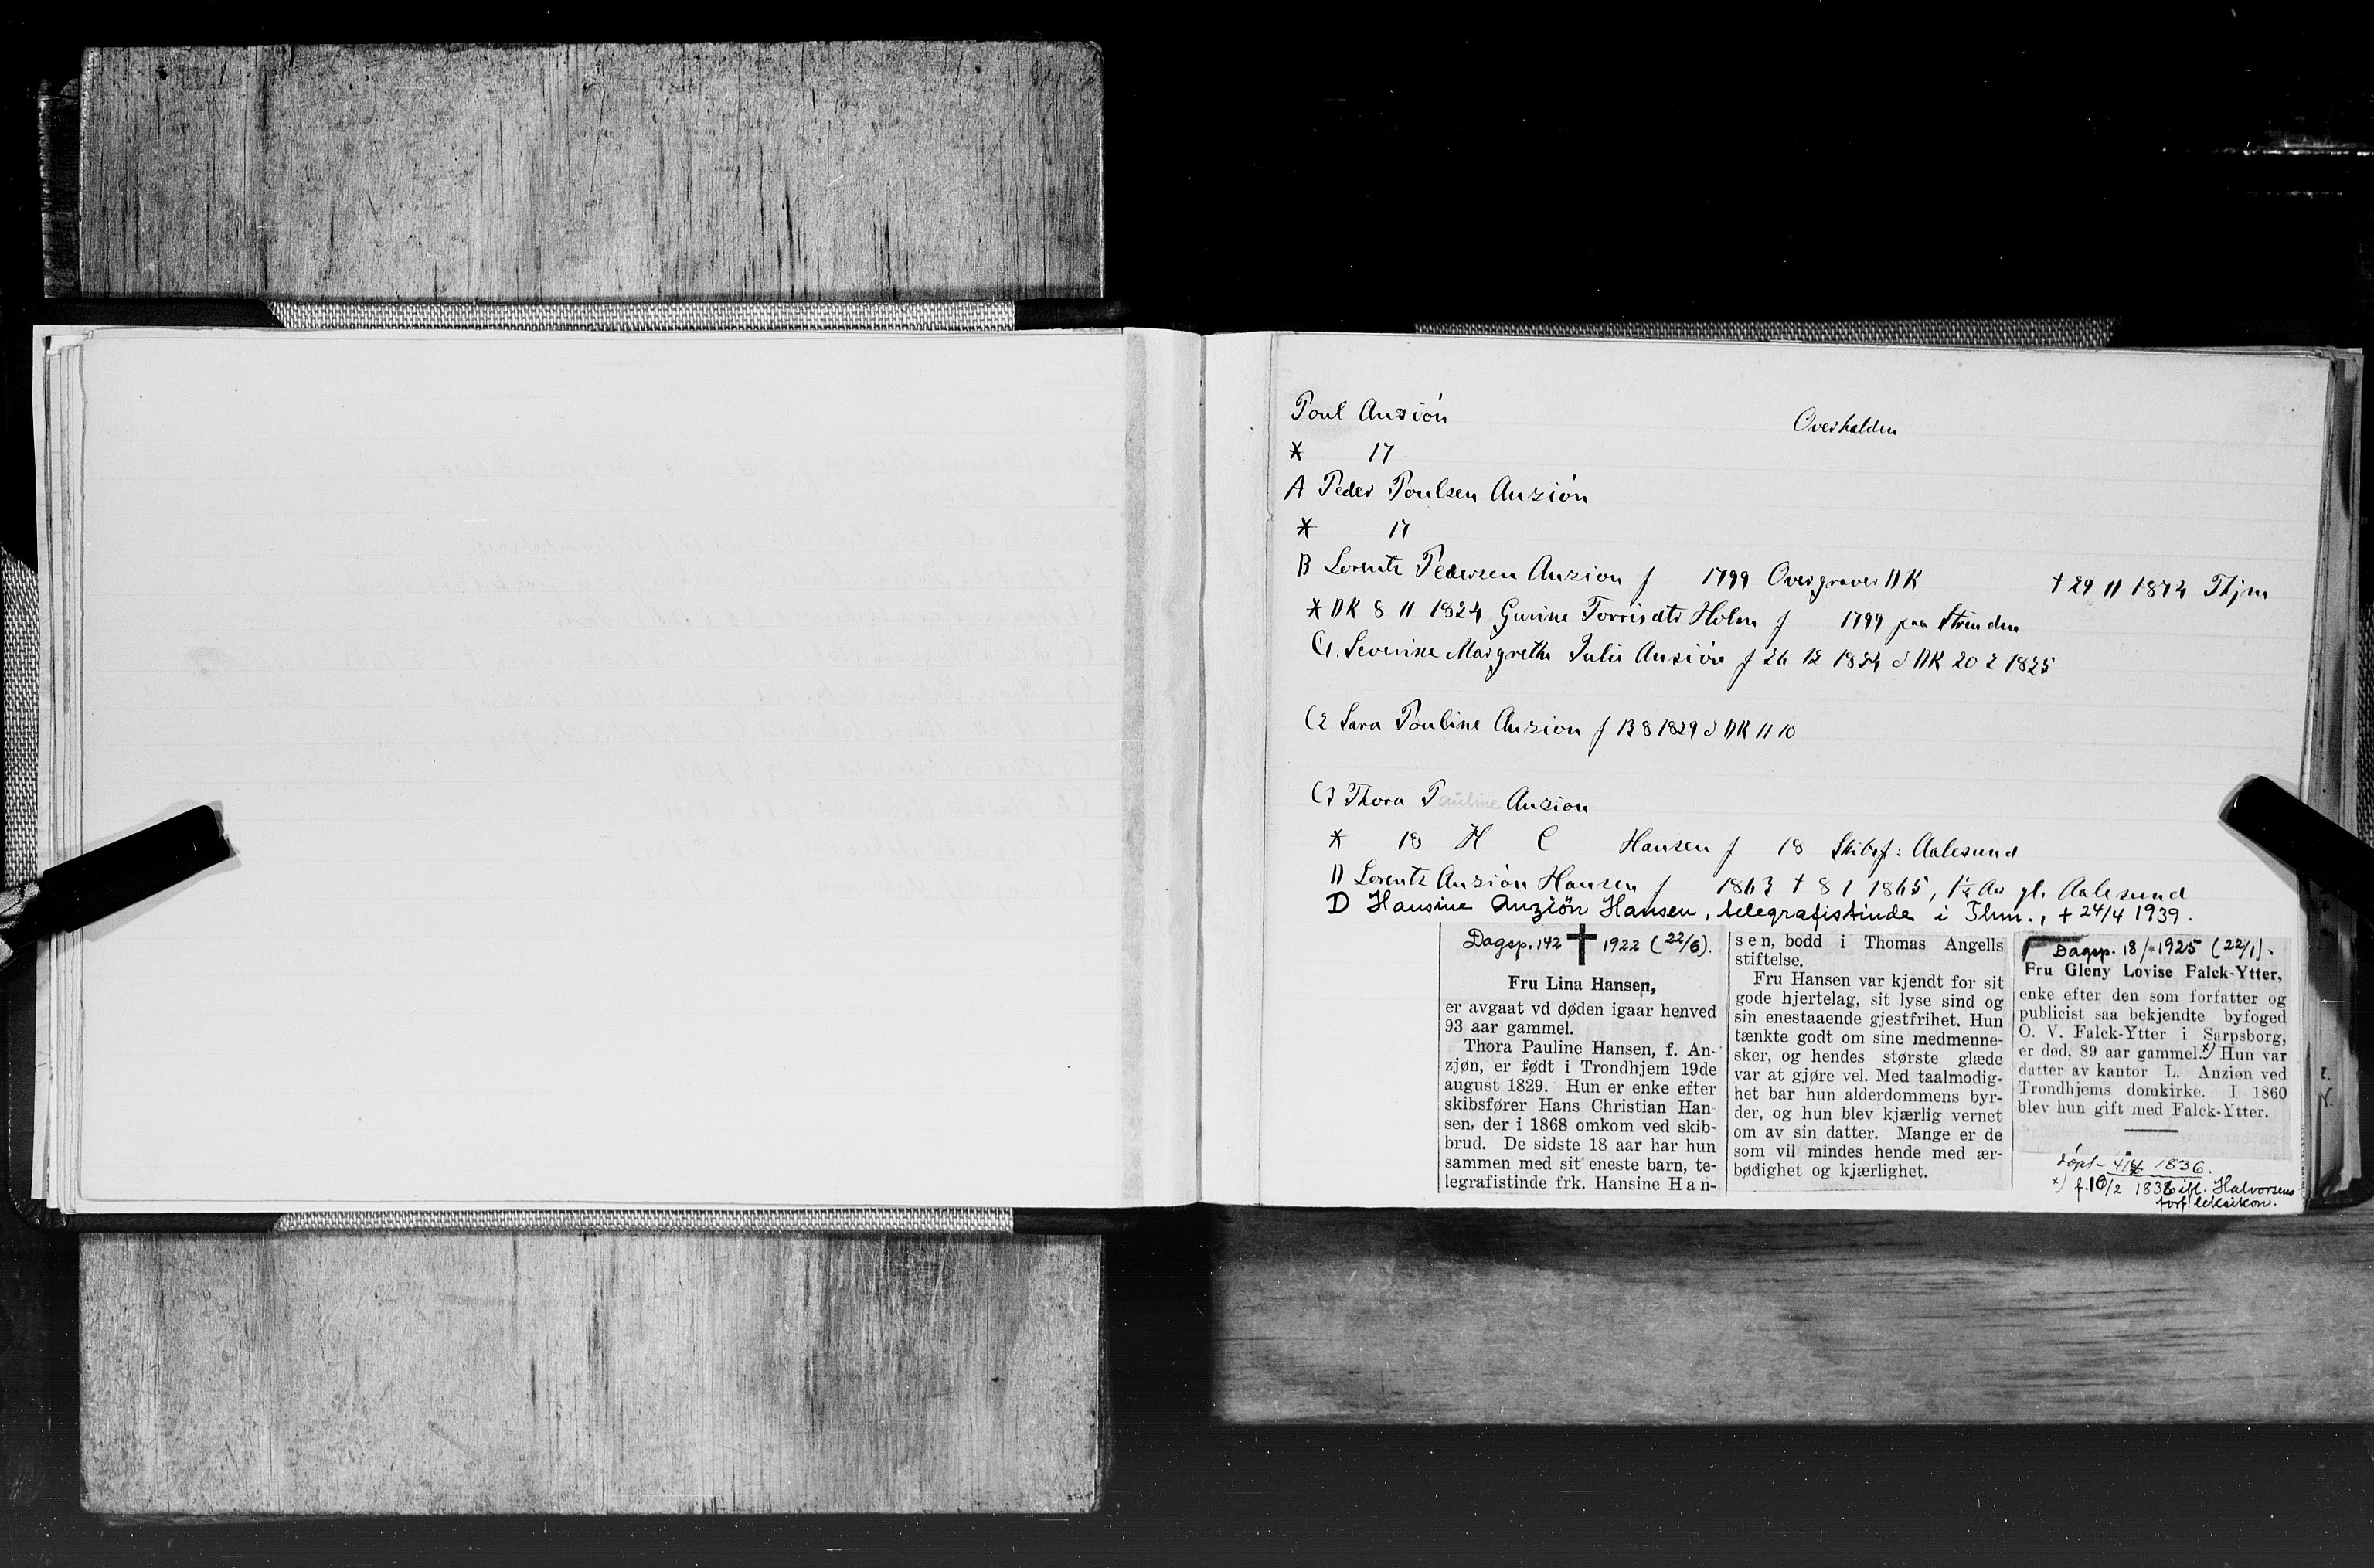 Poul Anzión
Overhalden
* 17
A Peder Poulsen Anzión
* 17
B Lorentz Pedersen Anzion f 1799 Overgraver DK † 29 11 1874 Thjm
* DK 8 11 1824 Gurine Torrisdtr Holm f 1799 paa Strinden
C1. Severine Margrethe Julie Anzión f 26 12 1824 d DK 20 2 1825
C2 Sara Pouline Anzion f 13 8 1829 d DK 11 10
C3 Thora Pauline Anzion
* 18 H C Hansen f 18 Skibsf: Aalesund
D Lorentz Anzión Hansen f 1863 † 8 1 1865, 1½ Aar gl. Aalesund
D Hansine Anziön Hansen, telegrafistinde i Thm., † 24/4 1939.
Dagsp. 142 1922 (22/6).
Fru Lina Hansen,
er avgaat vd døden igaar henved
93 aar gammel.
Thora Pauline Hansen, f. An-
zjøn, er født i Trondhjem 19de
august 1829. Hun er enke efter
skibsfører Hans Christian Han-
sen, der i 1868 omkom ved skib-
brud. De sidste 18 aar har hun
sammen med sit eneste barn, te-
legrafistinde frk. Hansine Han-
sen, bodd i Thomas Angells
stiftelse.
Fru Hansen var kjendt for sit
gode hjertelag, sit lyse sind og
sin enestaaende gjestfrihet. Hun
tænkte godt om sine medmenne-
sker, og hendes største glæde
var at gjøre vel. Med taalmodig-
het bar hun alderdommens byr-
der, og hun blev kjærlig vernet
om av sin datter. Mange er de
som vil mindes hende med ær-
bødighet og kjærlighet.
Dagsp. 18/ 1925 (22/1).
Fru Gleny Lovise Falck-Ytter,
enke efter den som forfatter og
publicist saa bekjendte byfoged
O. V. Falck-Ytter i Sarpsborg,
er død, 89 aar gammel. x) Hun var
datter av kantor L. Anzion ved
Trondhjems domkirke. I 1860
blev hun gift med Falck-Ytter.
døpt 1836.
x) f. 10/2 1836 ifl. Halvorsens
forf. leksikon.